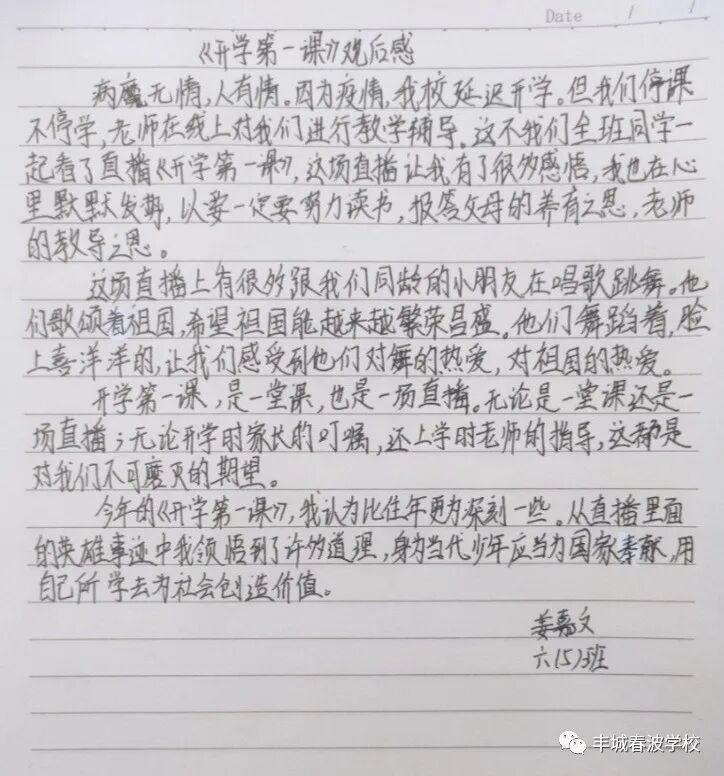 Date / /
《开学第一课》观后感
病魔无情，人有情。因为疫情，我校延迟开学。但我们停课
不停学，老师在线上对我们进行教学辅导。这不我们全班同学一
起看了直播《开学第一课》，这场直播让我有了很多感悟，我也在心
里默默发势，以要一定要努力读书，报答父母的养育之恩，老师
的教导之恩。
这场直播上有很多跟我们同龄的小朋友在唱歌跳舞。他
们歌颂着祖国，希望祖国能越来越繁荣昌盛。他们舞蹈着，脸
上喜洋洋的，让我们感受到他们对舞的热爱，对祖国的热爱。
开学第一课，是一堂课，也是一场直播。无论是一堂课还是一
场直播；无论开学时家长的叮嘱，还上学时老师的指导，这都是
对我们不可磨灭的期望。
今年的《开学第一课》，我认为比往年更为深刻一些。从直播里面
的英雄事迹中我领悟到了许多道理，身为当代少年应当为国家奉献，用
自己所学去为社会创造价值。
姜嘉文
六（5）班
丰城春波学校